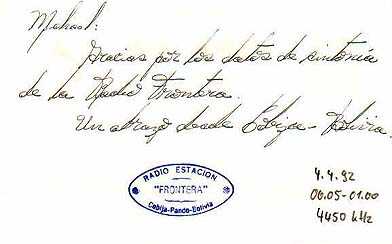 Mehael:
Gracias por los datos de sintonía
de la Radio Frontera.
Un abrazo desde Cobija - Bolivia.
RADIO ESTACION
"FRONTERA"
Cobija-Pando-Bolivia
4.4.92
00.05-01.00
4450 kHz